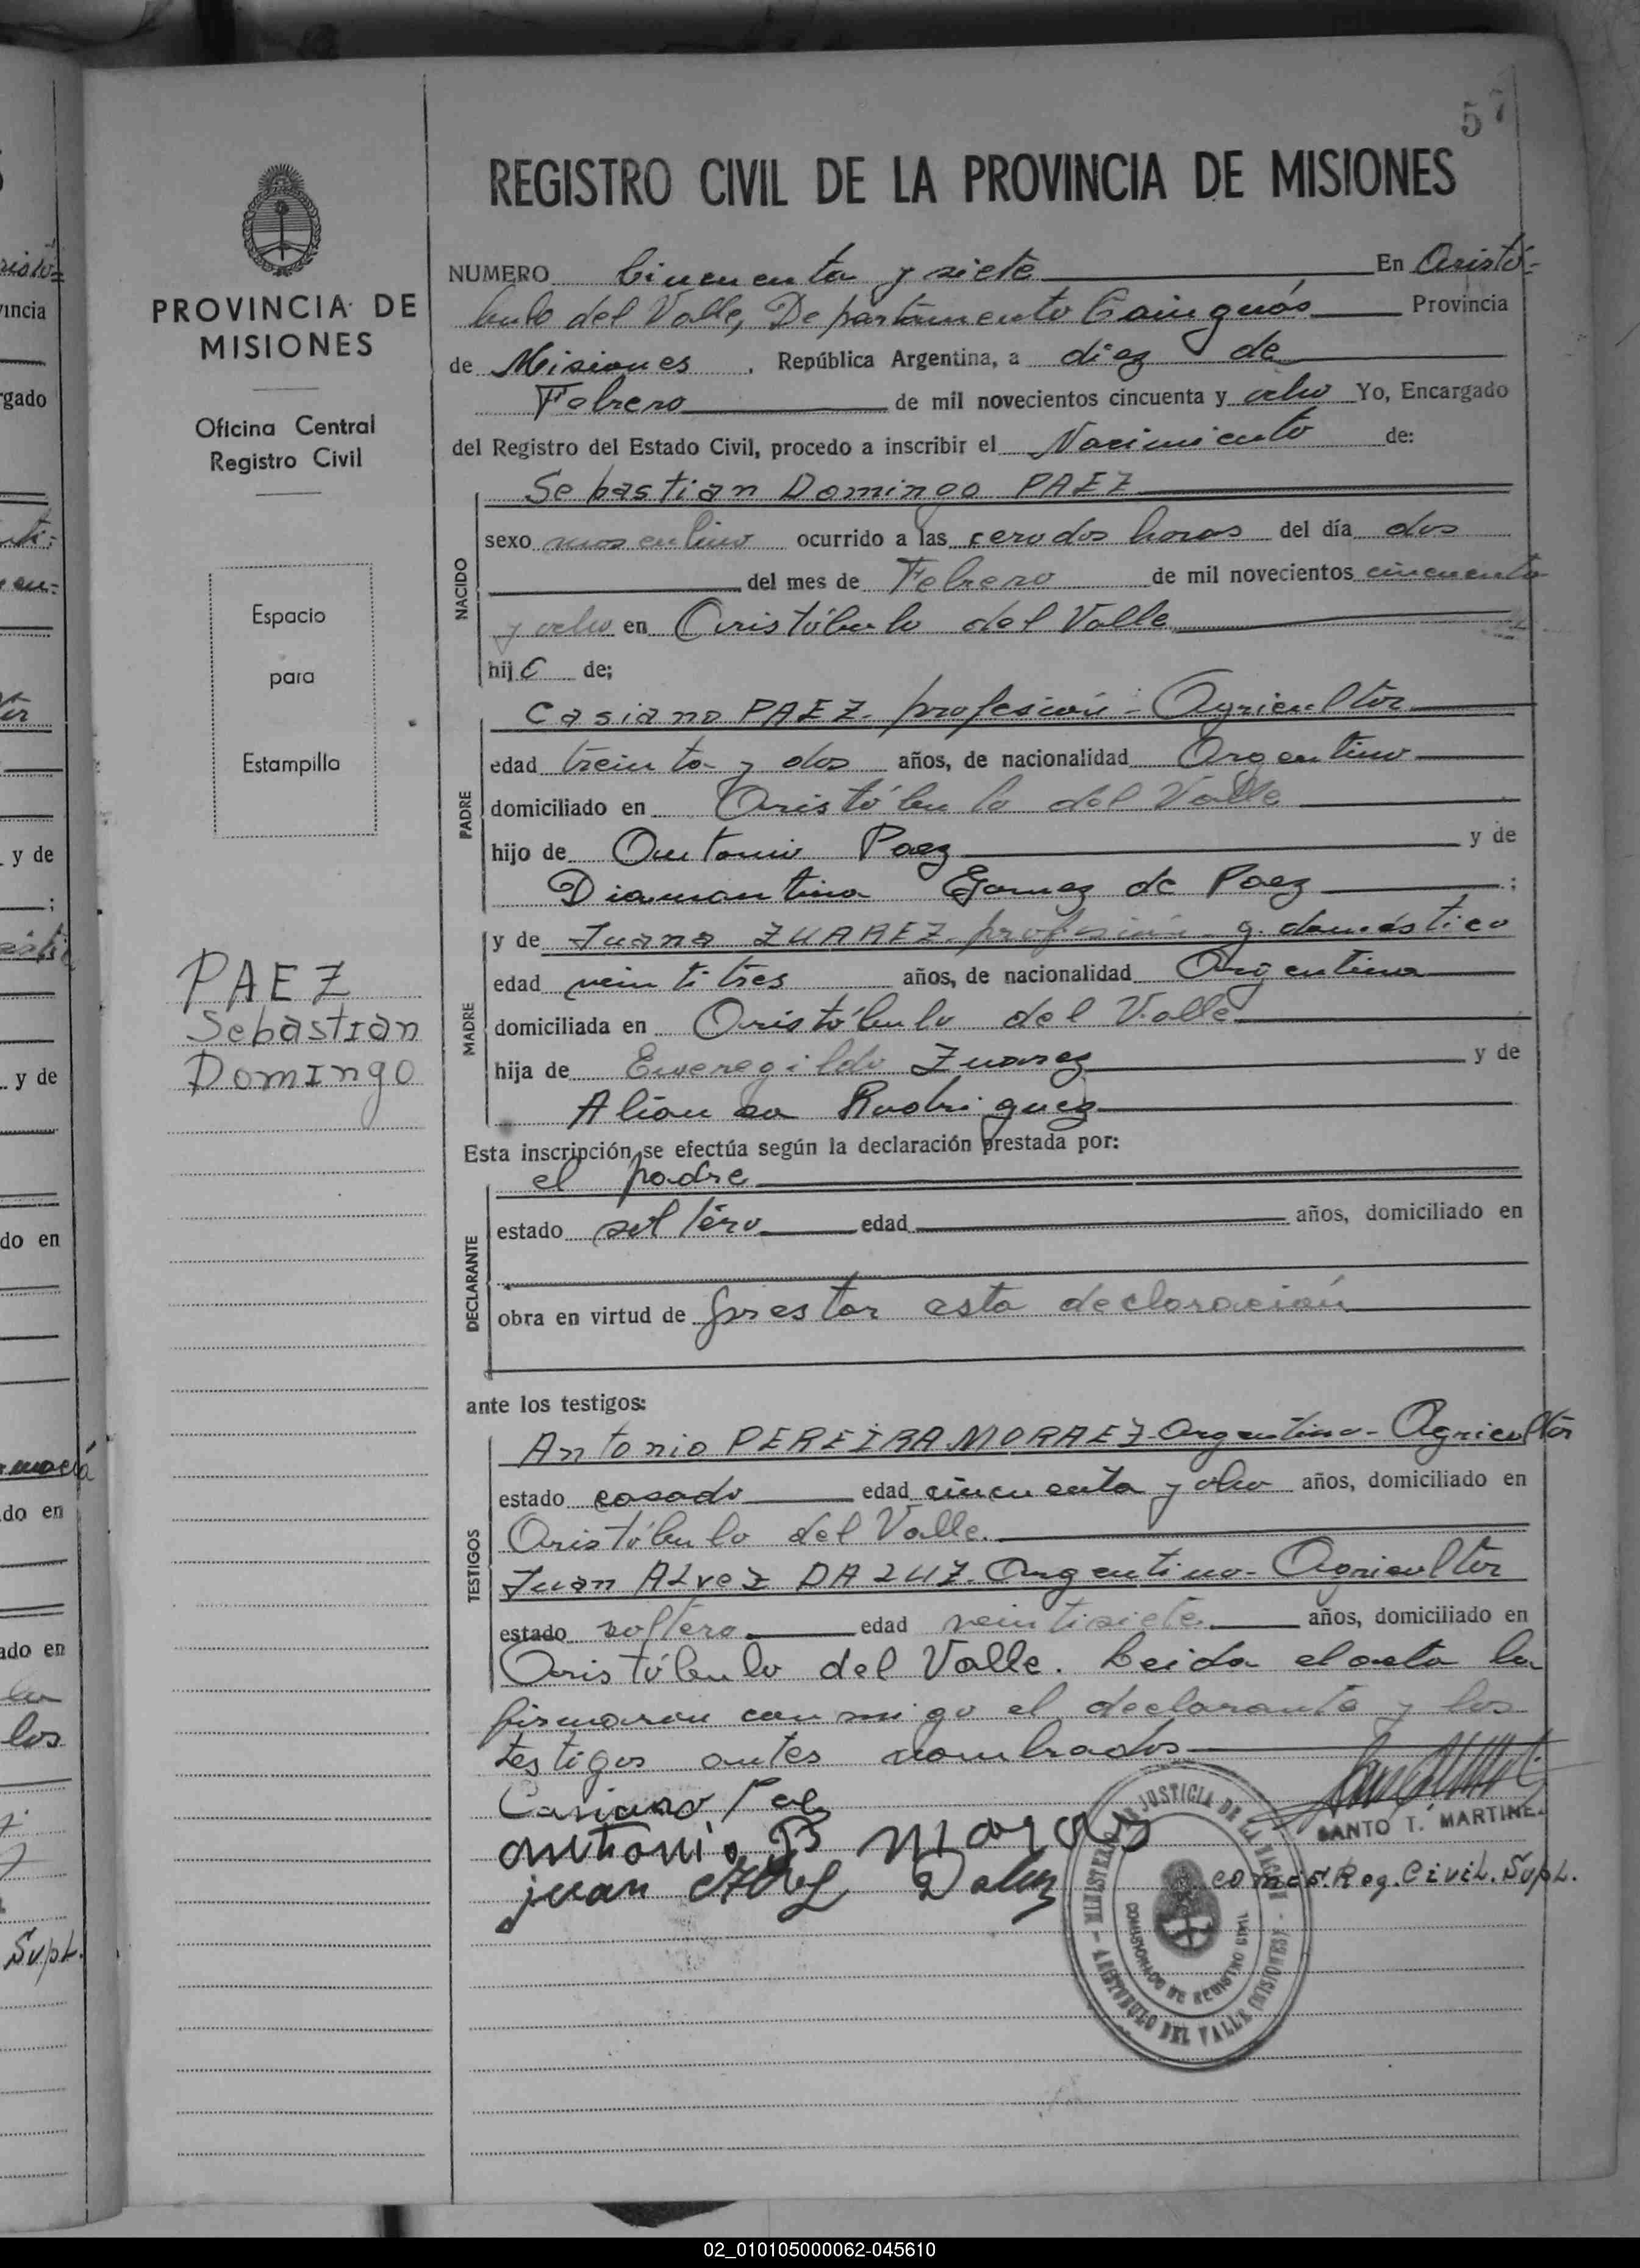 57
REGISTRO CIVIL DE LA PROVINCIA DE MISIONES
NUMERO Cincuenta y siete En Aristó-
bulo del Valle, Departamento Cainguás Provincia
de Misiones, República Argentina, a diez de
Febrero de mil novecientos cincuenta y ocho Yo, Encargado
del Registro del Estado Civil, procedo a inscribir el Nacimiento de:
NACIDO
Sebastian Domingo PAEZ
sexo masculino ocurrido a las cero dos horas del día dos
del mes de Febrero de mil novecientos cincuenta
y ocho en Aristóbulo del Valle
hijo de;
PADRE
Casiano PAEZ. profesión - Agricultor
edad treinta y dos años, de nacionalidad Argentino
domiciliado en Aristóbulo del Valle
hijo de Antonio Paez y de
Diamantina Gomez de Paez ;
MADRE
y de Juana ZUAREZ. profesión q. doméstico
edad veintitres años, de nacionalidad Argentina
domiciliada en Aristóbulo del Valle
hija de Zuarez y de
Rodriguez
Esta inscripción se efectúa según la declaración prestada por:
DECLARANTE
el padre
estado soltero edad años, domiciliado en
obra en virtud de prestar esta declaración
ante los testigos:
TESTIGOS
Antonio PEREIRA MORAEZ-Argentino-Agricultor
estado casado edad cincuenta y ocho años, domiciliado en
Aristóbulo del Valle.
Juan ALVEZ DA LUZ. Argentino-Agricultor
estado soltero edad veintisiete años, domiciliado en
Aristóbulo del Valle. Leida el acta la
firmaron conmigo el declarante y los
testigos antes nombrados
Casiano Paez
Antonio P
juan Daluz
SANTO T. MARTINEZ
Reg. Civil. Supl.
MINISTERIO DE JUSTICIA DE LA NACION
COMISIONADO DE REGISTRO CIVIL
- ARISTOBULO DEL VALLE (MISIONES) -
PROVINCIA DE
MISIONES
Oficina Central
Registro Civil
Espacio
para
Estampilla
PAEZ
Sebastian
Domingo
vincia
rgado
y de
y de
do en
do en
ado en
los
Supl.
02_010105000062-045610